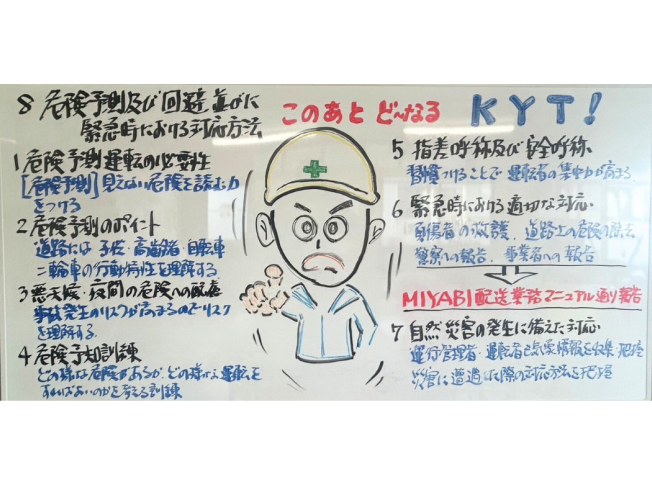 8 危険予測及び回避 並びに
緊急時における対応方法
このあと ど〜なる KYT!
1 危険予測運転の必要性
[危険予測] 見えない危険を読む力
をつける
2 危険予測のポイント
道路には 子供・高齢者・自転車
二輪車の行動特性を理解する
3 悪天候・夜間の危険への配慮
事故発生のリスクが高まるのでリスク
を理解する
4 危険予知訓練
どの様な危険があるか、どの様な運転を
すればよいのかを考える訓練
5 指差呼称及び安全呼称
習慣づけることで 運転者の集中力が高まる
6 緊急時における適切な対応
負傷者の救護、道路上の危険の除去
警察への報告、事業者への報告
MIYABI配送業務マニュアル通り報告
7 自然災害の発生に備えた対応
運行管理者・運転者と気象情報を収集・把握
災害に遭遇した際の対応方法を把握